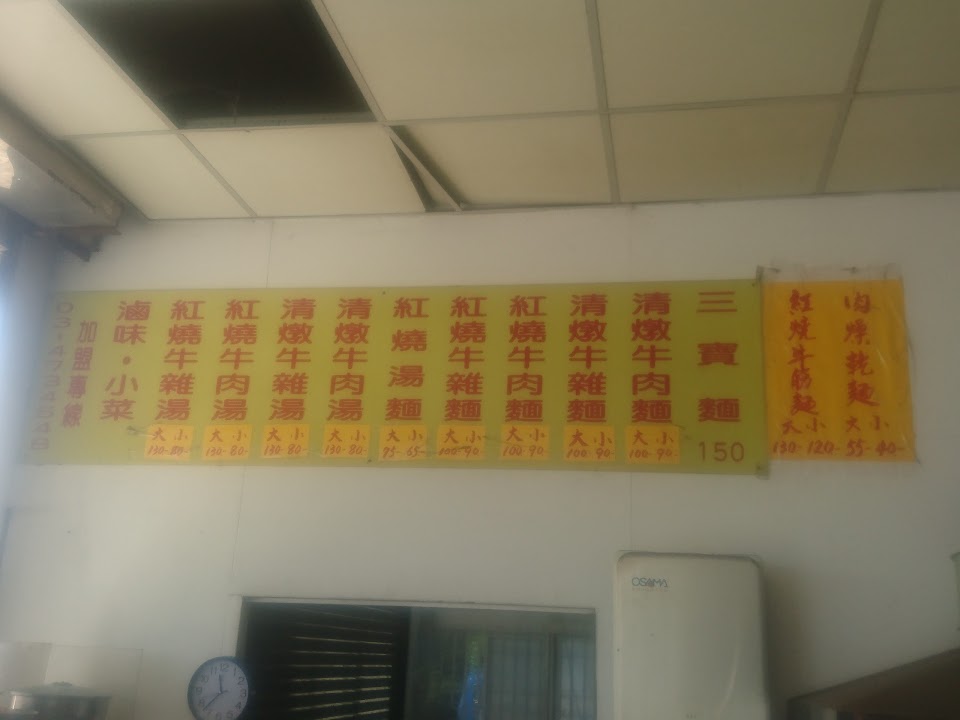 肉燥乾麵
大 小
55- 40-
紅燒牛筋麵
大 小
130- 120-
三寶麵
150
清燉牛肉麵
大 小
100- 90-
清燉牛雜麵
大 小
100- 90-
紅燒牛肉麵
大 小
100- 90-
紅燒牛雜麵
大 小
100- 90-
紅燒湯麵
大 小
75- 65-
清燉牛肉湯
大 小
130- 80-
清燉牛雜湯
大 小
130- 80-
紅燒牛肉湯
大 小
130- 80-
紅燒牛雜湯
大 小
130- 80-
滷味·小菜
加盟專線
OSAMA